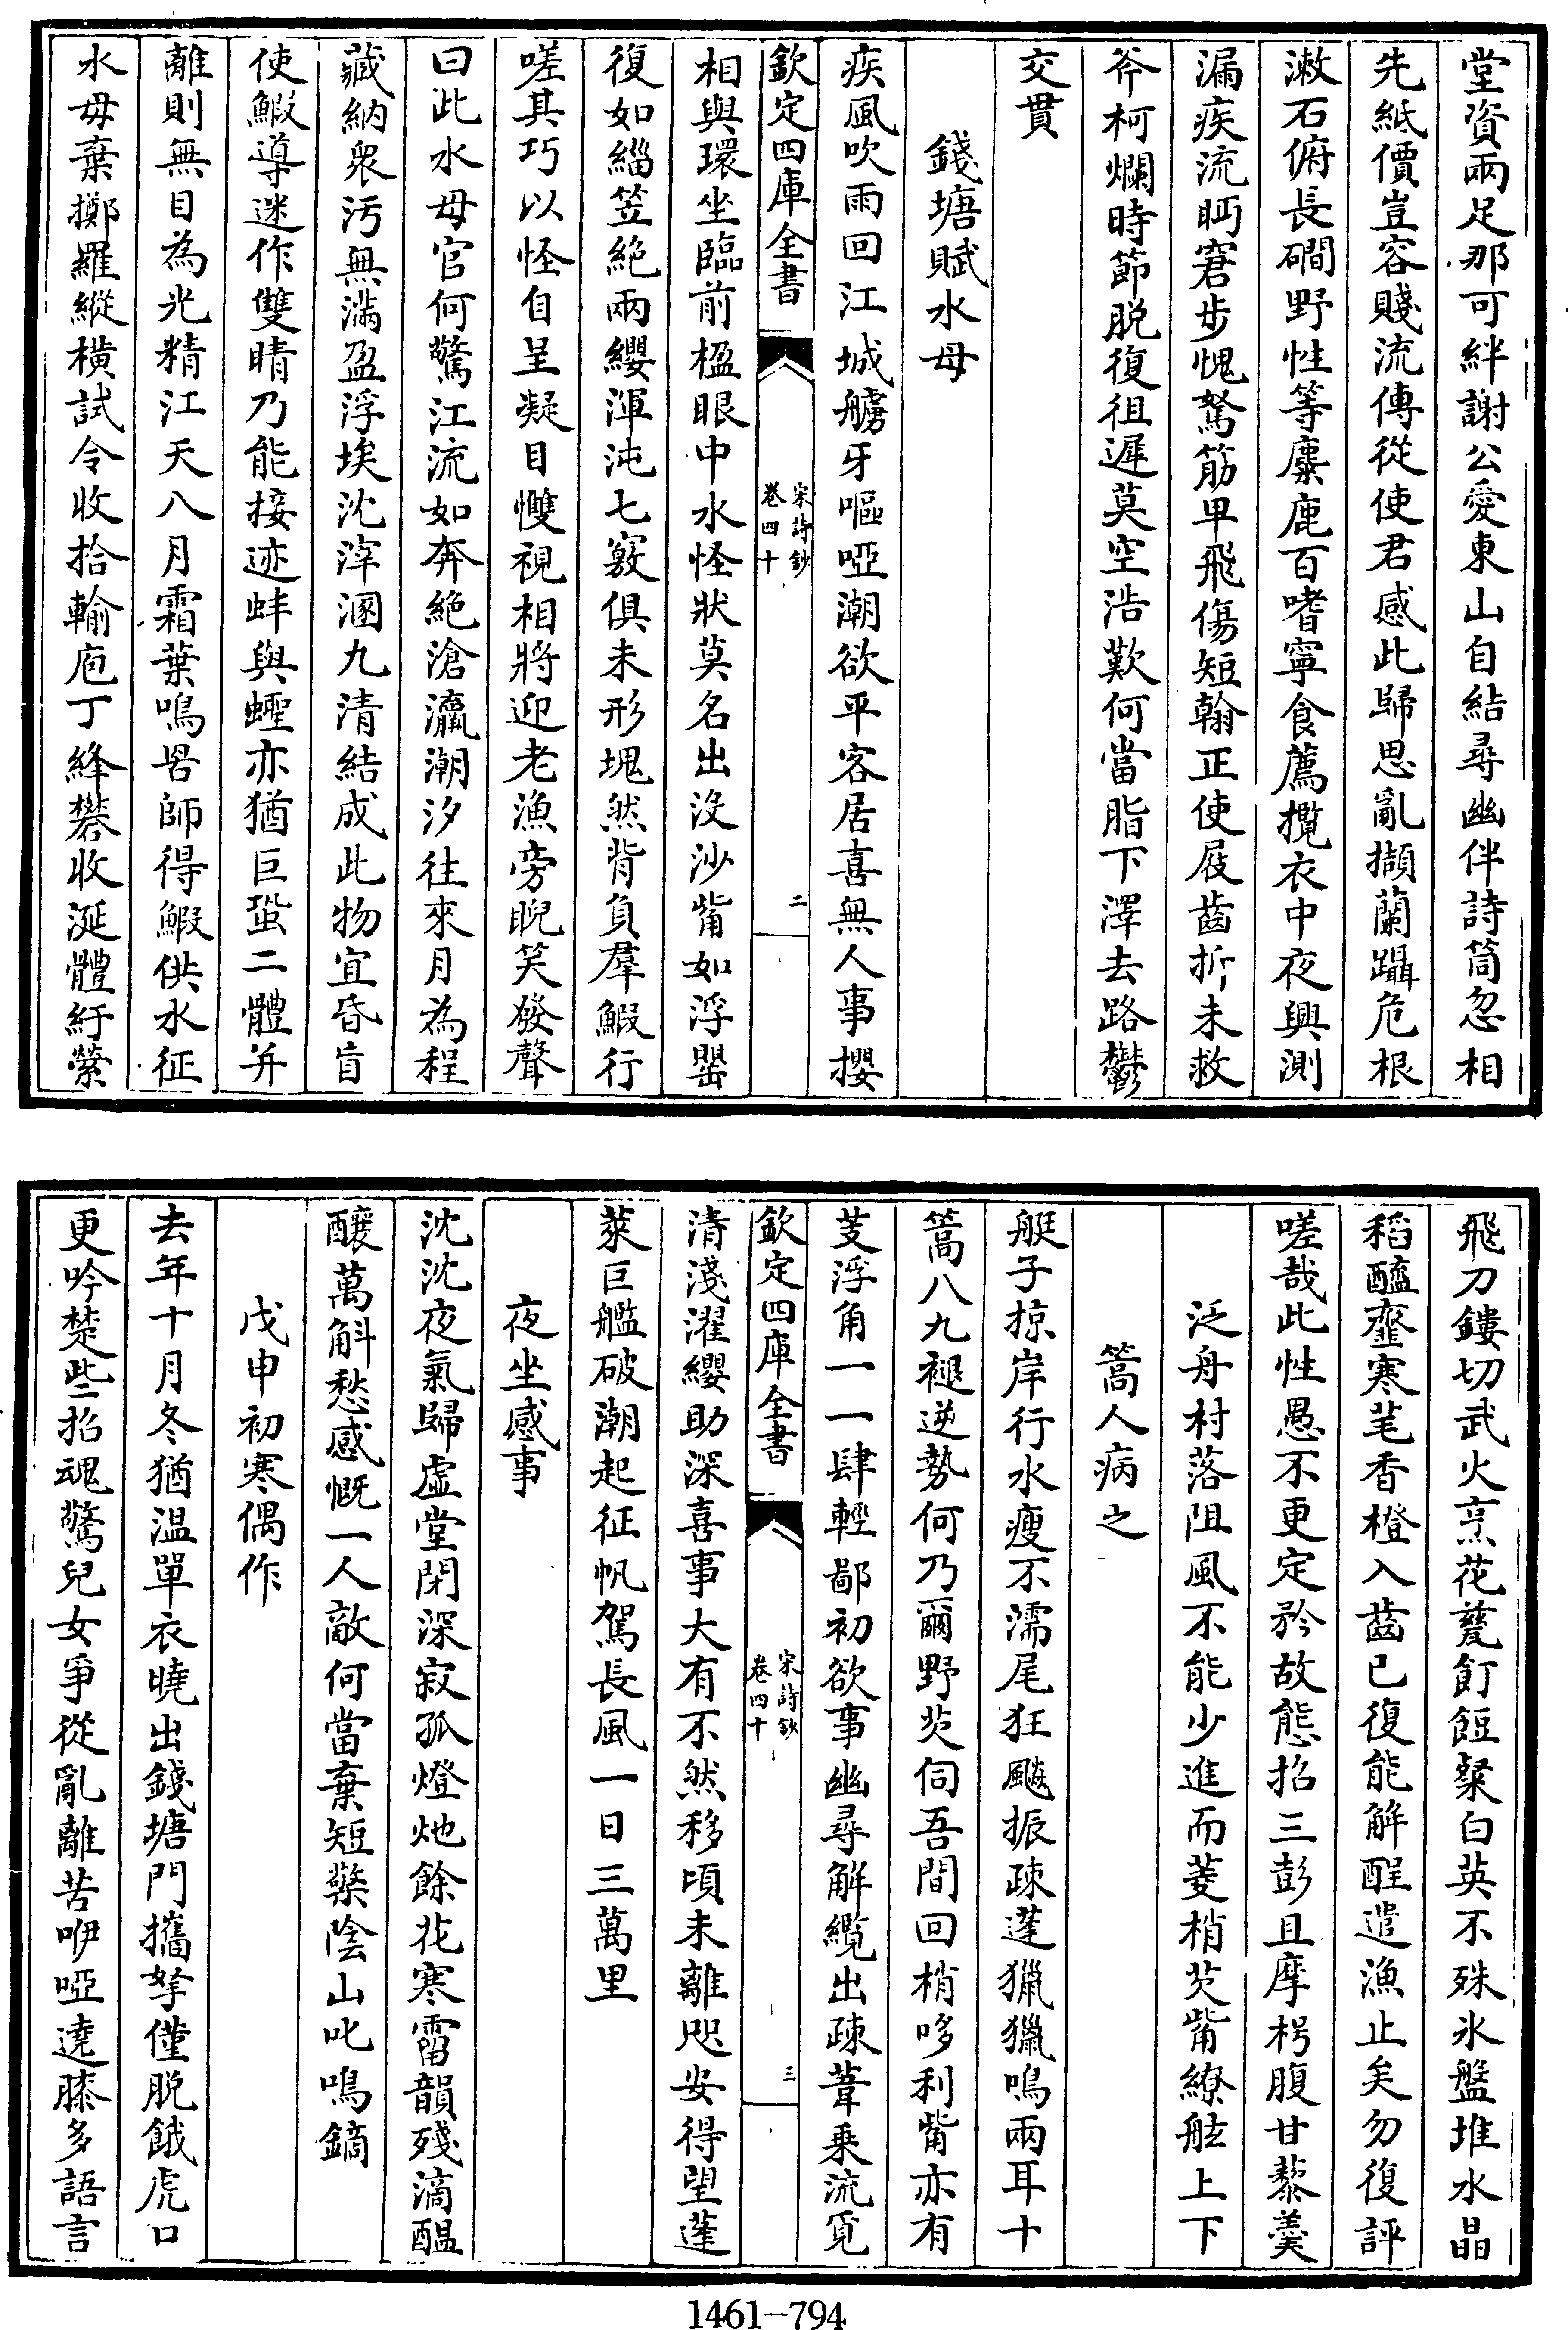 堂資兩足那可絆謝公愛東山自結尋幽伴詩筒忽相
先紙價豈容賤流傳從使君感此歸思亂擷蘭躡危根
漱石俯長磵野性等麋鹿百嗜寧食薦攬衣中夜興測
漏疾流眄窘步愧駑筋卑飛傷短翰正使屐齒折未救
斧柯爛時節脫復徂遲莫空浩歎何當脂下澤去路鬱
交貫
錢塘賦水母
疾風吹雨回江城艣牙嘔啞潮欲平客居喜無人事攖
欽定四庫全書
宋詩鈔
卷四十
二
相與環坐臨前楹眼中水怪狀莫名出沒沙觜如浮罌
復如緇笠絕兩纓渾沌七竅俱未形塊然背負羣鰕行
嗟其巧以怪自呈凝目㦬視相將迎老漁旁睨笑發聲
曰此水母官何驚江流如奔絕滄瀛潮汐往來月為程
藏納衆汚無滿盈浮埃沈滓溷九清結成此物宜昏盲
使鰕導迷作雙睛乃能接迹蚌與蟶亦猶巨蛩二體并
離則無目為光精江天八月霜葉鳴罟師得鰕供水征
水母棄擲羅縱橫試令收拾輸庖丁絳礬收涎體紆縈
飛刀鏤切武火烹花甆飣餖粲白英不殊氷盤堆水晶
稻醯虀寒芼香橙入齒已復能解酲遣漁止矣勿復評
嗟哉此性愚不更定矜故態招三彭且摩枵腹甘藜羮
泛舟村落阻風不能少進而菱梢芡觜繚舷上下
篙人病之
艇子掠岸行水瘦不濡尾狂飈振疎蓬獵獵鳴兩耳十
篙八九褪逆勢何乃爾野芡伺吾間回梢哆利觜亦有
芰浮角一一肆輕鄙初欲事幽尋解纜出疎葦乗流覓
欽定四庫全書
宋詩鈔
卷四十
三
清淺濯纓助深喜事大有不然移頃未離咫安得望蓬
萊巨艦破潮起征帆駕長風一日三萬里
夜坐感事
沈沈夜氣歸虛堂閉深寂孤燈灺餘花寒霤韻殘滴醖
釀萬斛愁感慨一人敵何當棄短檠陰山叱鳴鏑
戊申初寒偶作
去年十月冬猶温單衣曉出錢塘門攜孥僅脫餓虎口
更吟楚些招魂驚兒女爭從亂離苦咿啞遶膝多語言